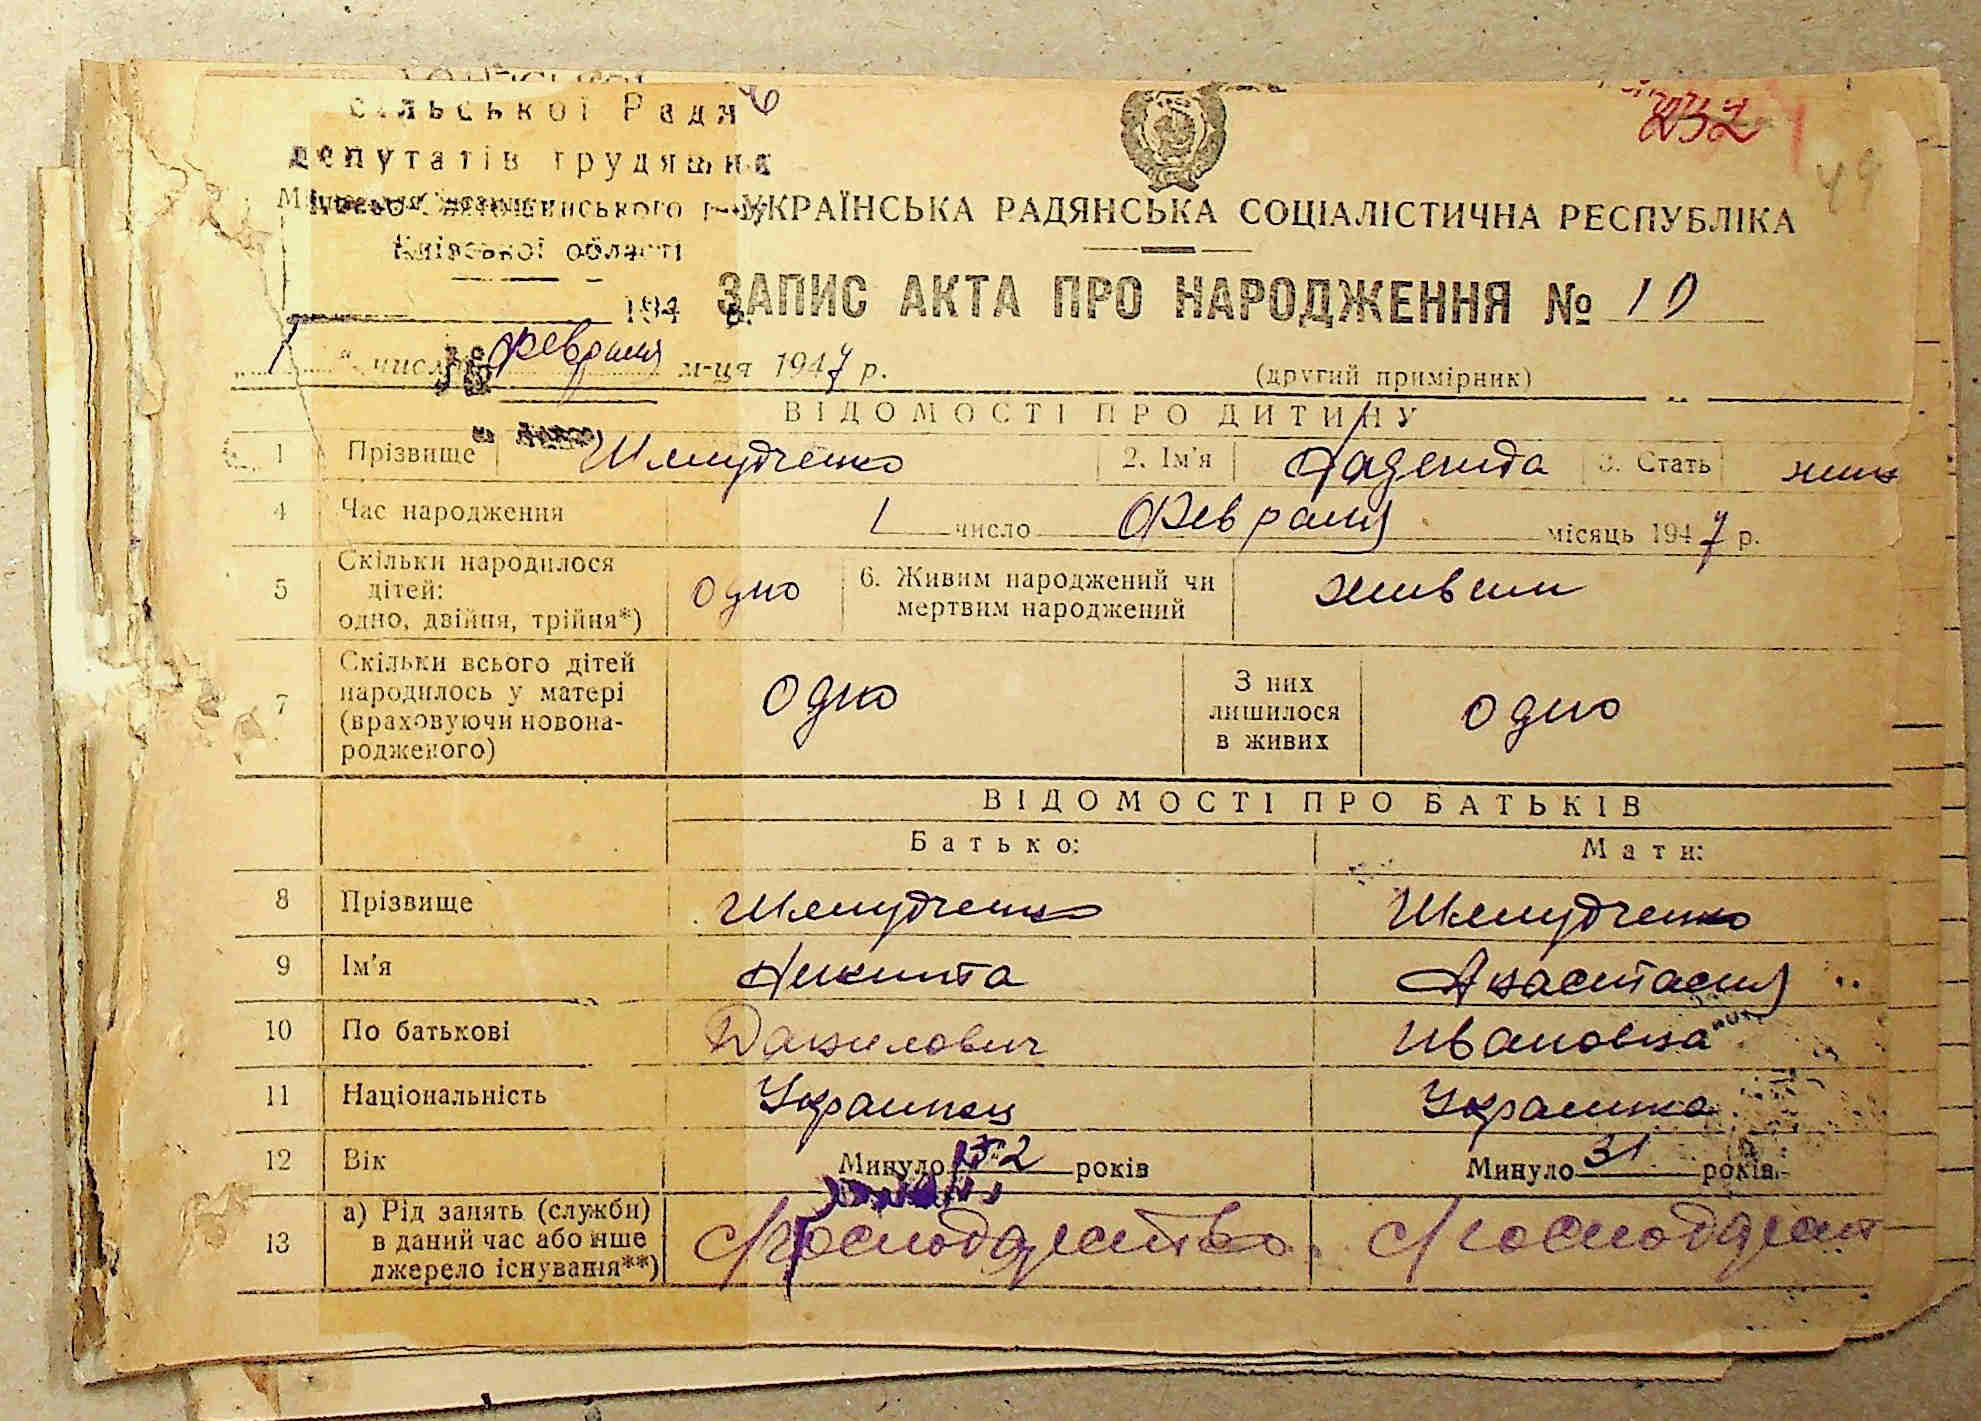 сільської Ради
депутатів трудящих
Києво-Святошинського р-ну
Київської області
194 р.
232
49
УКРАЇНСЬКА РАДЯНСЬКА СОЦІАЛІСТИЧНА РЕСПУБЛІКА
ЗАПИС АКТА ПРО НАРОДЖЕННЯ № 10
"1" числа февраля м-ця 1947 р.
(другий примірник)
ВІДОМОСТІ ПРО ДИТИНУ
1 Прізвище Шмидченко 2. Ім'я Надежда 3. Стать жен
4 Час народження 1 число Февраля місяць 1947 р.
5 Скільки народилося дітей: одно, двійня, трійня*) одно 6. Живим народжений чи мертвим народжений живым
7 Скільки всього дітей народилось у матері (враховуючи новонародженого) одно З них лишилося в живих одно
ВІДОМОСТІ ПРО БАТЬКІВ
Батько: Мати:
8 Прізвище Шмидченко Шмидченко
9 Ім'я Никита Анастасия
10 По батькові Данилович Ивановна
11 Національність Украинец Украинка
12 Вік Минуло років Минуло 31 років
13 а) Рід занять (служби) в даний час або інше джерело існування**)